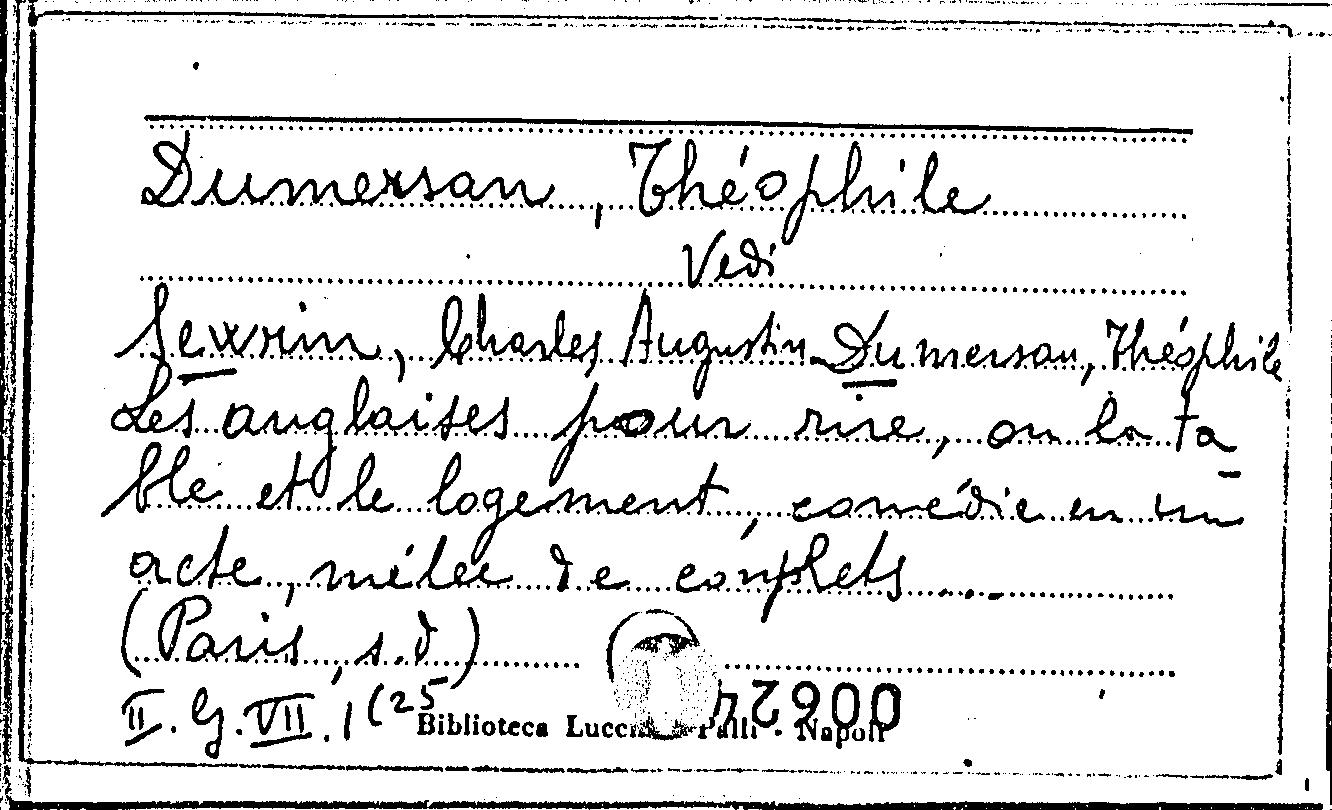 Dumersan, Théophile
Vedi
Sewrin, Charles Augustin - Dumersan, Théophile
Les anglaises pour rire, ou la ta
ble et le logement, comédie en un
acte, mêlée de couplets...
(Paris, s.d)
II. G. VII. 1 (25
Biblioteca Lucchesi Palli - Napoli